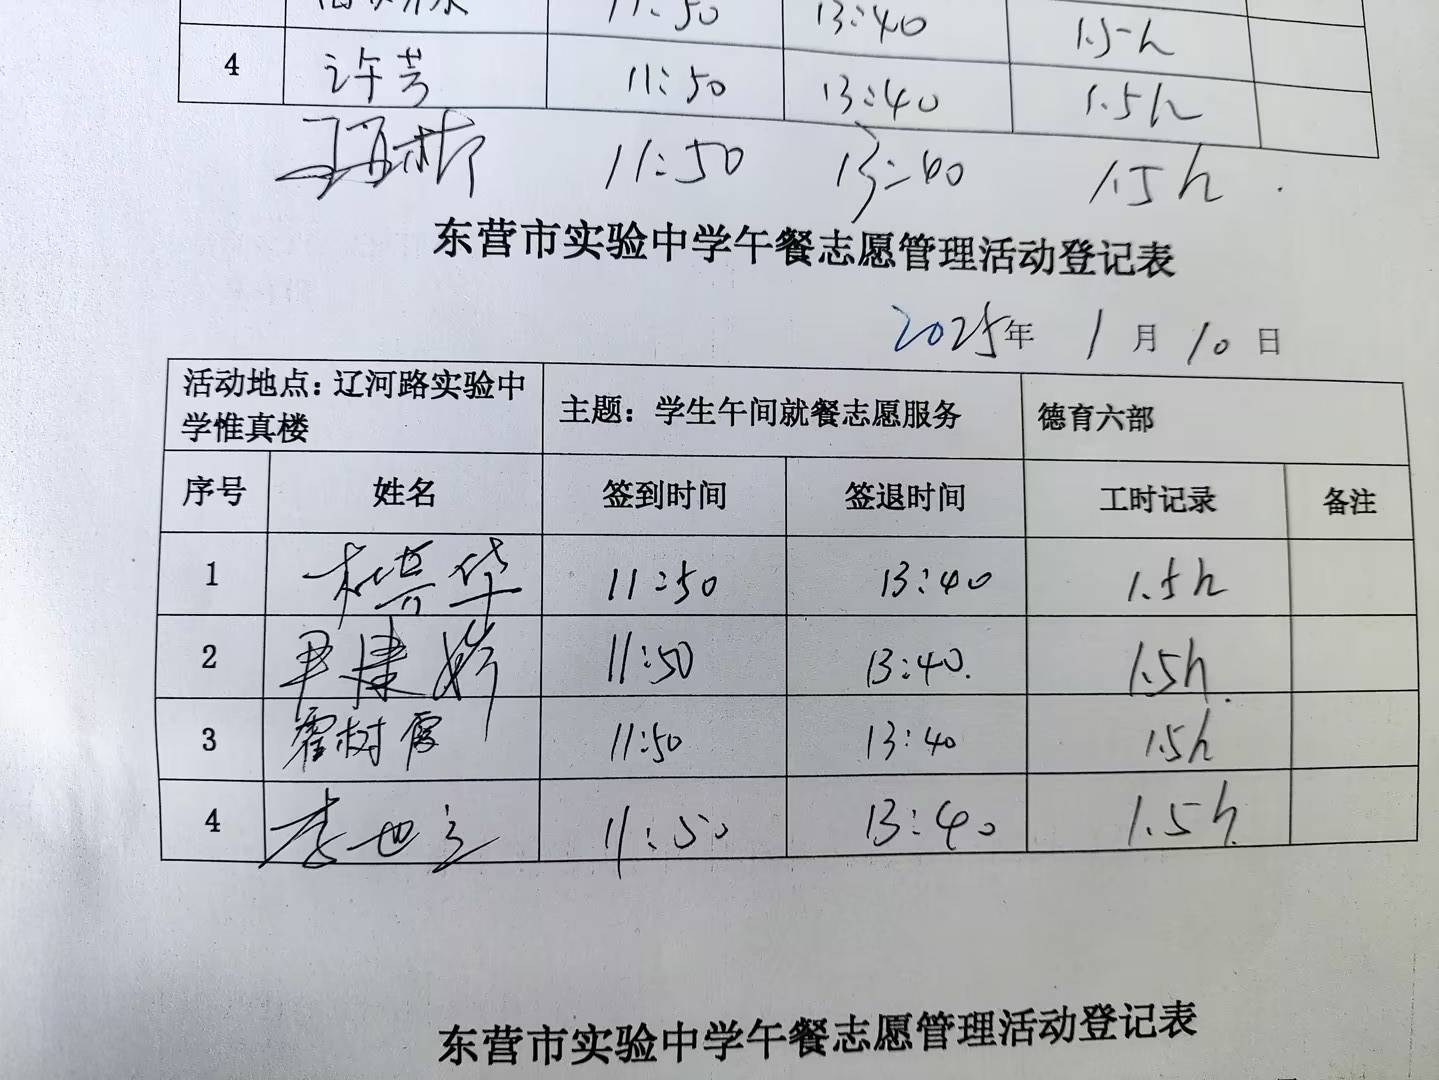 11:50 13:40 1.5h
4 许芳 11:50 13:40 1.5h
11:50 13:40 1.5h
东营市实验中学午餐志愿管理活动登记表
2025年 1月 10日
活动地点：辽河路实验中学惟真楼 主题：学生午间就餐志愿服务 德育六部
序号 姓名 签到时间 签退时间 工时记录 备注
1 11:50 13:40 1.5h
2 尹建娇 11:50 13:40. 1.5h.
3 霍树霞 11:50 13:40 1.5h
4 李世立 11:50 13:40 1.5h
东营市实验中学午餐志愿管理活动登记表